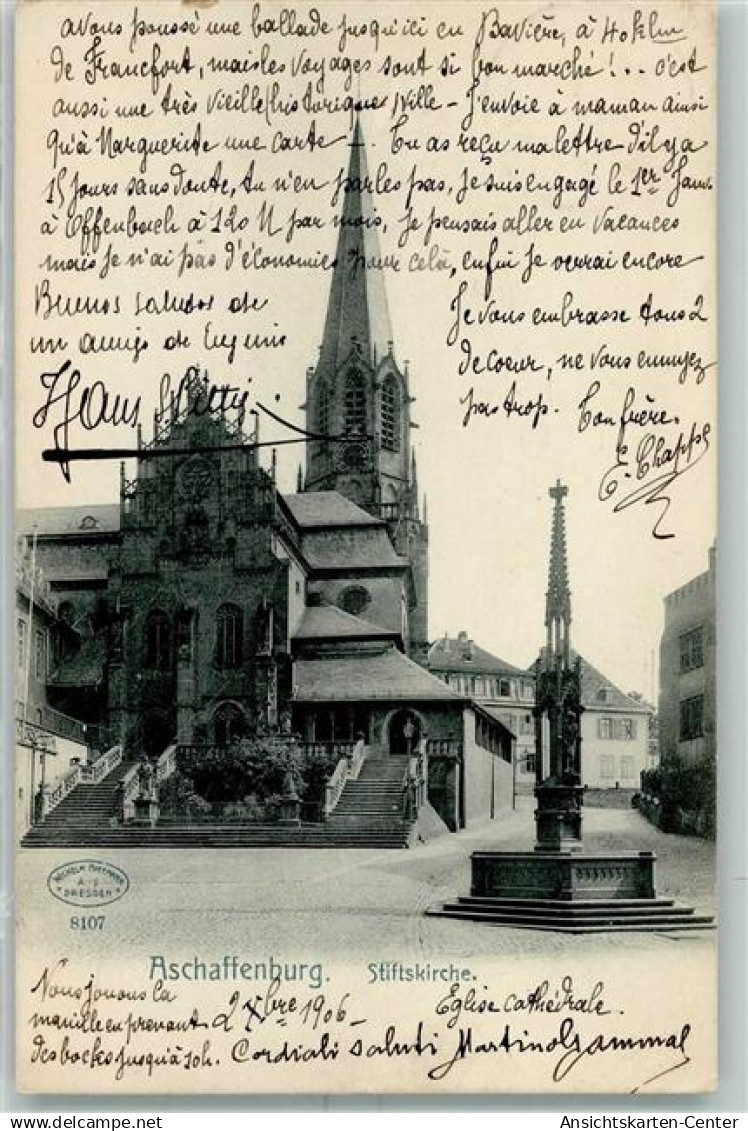 avons poussé une ballade jusqu'ici en Bavière, à 40 klm
de Francfort, mais les voyages sont si bon marché !.. c'est
aussi une très vieille (historique) Ville - J'envoie à maman ainsi
qu'à Marguerite une carte - Tu as reçu ma lettre d'il y a
15 jours sans doute, tu n'en parles pas, Je suis engagé le 1er Janv
à Offenbach à 120 M par mois, Je pensais aller en vacances
mais je n'ai pas d'économies pour celà, enfin je verrai encore
Je vous embrasse tous 2
de coeur, ne vous ennuyez
pas trop. Ton frère.
E. Chappe
Buenos saludos de
un amigo de Eugenio
Hans
WILHELM HOFFMANN
A-G
DRESDEN
8107
Aschaffenburg. Stiftskirche.
Nous jouons la
manille en prenant
des bocks jusqu'à soh.
2 Xbre 1906
Eglise cathédrale.
Cordiali saluti Martino
Ansichtskarten-Center